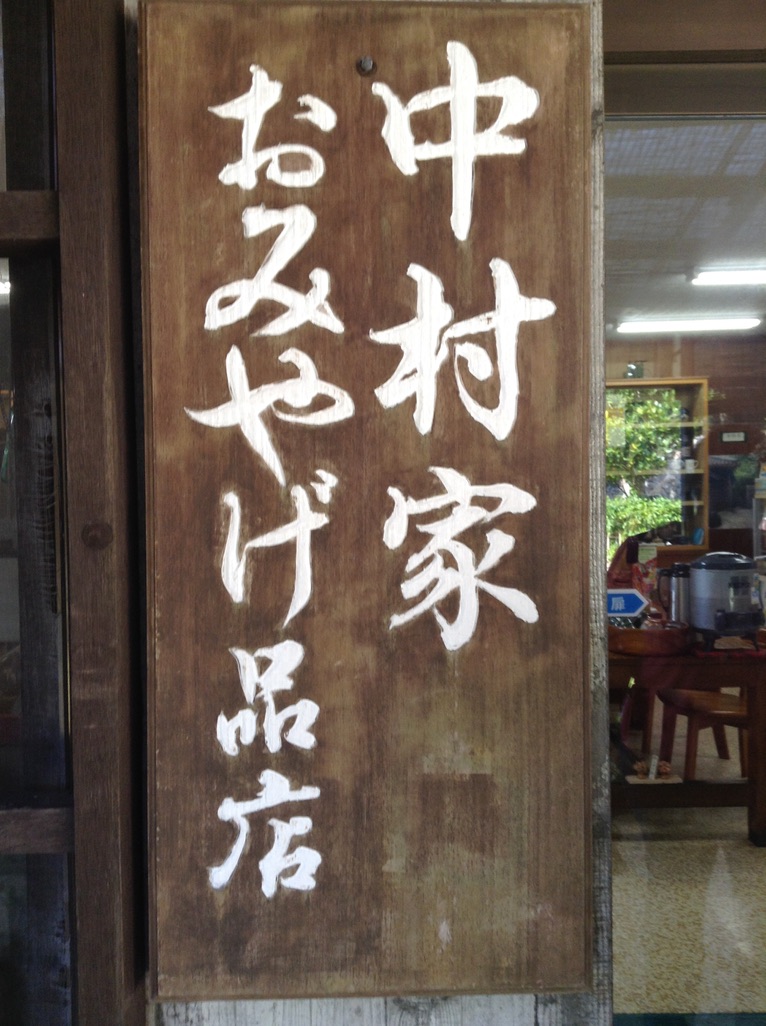 中村家
おみやげ品店